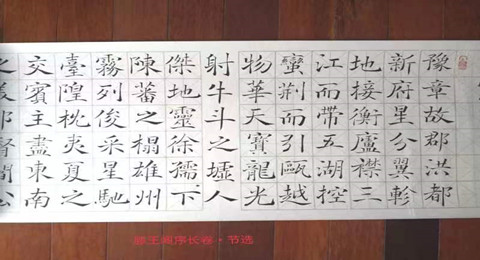 豫章故郡洪都
新府星分翼軫
地接衡廬襟三
江而帶五湖控
蠻荆而引甌越
物華天寶龍光
射牛斗之墟人
傑地靈徐孺下
陳蕃之榻雄州
霧列俊采星馳
臺隍枕夷夏之
交賓主盡東南
之美都督閻公
滕王阁序长卷·节选